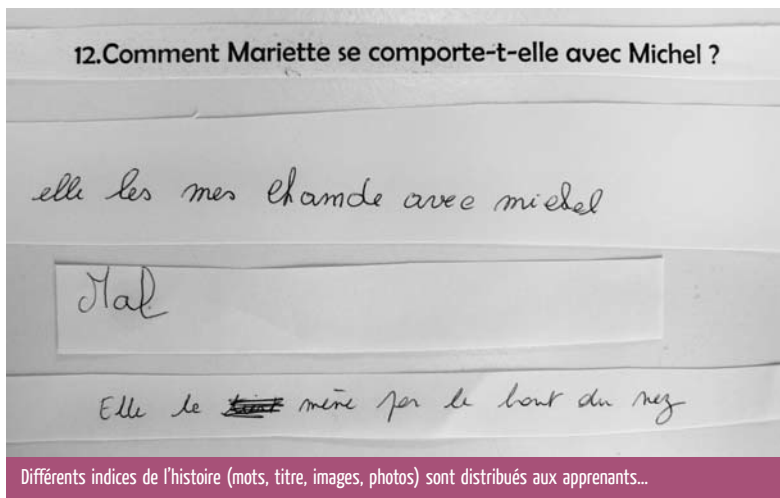 12.Comment Mariette se comporte-t-elle avec Michel ?
elle les mes chamde avec michel
Mal
Elle le tient mène par le bout du nez
Différents indices de l'histoire (mots, titre, images, photos) sont distribués aux apprenants...